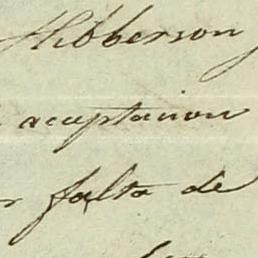 Hibberson
aceptacion
falta de